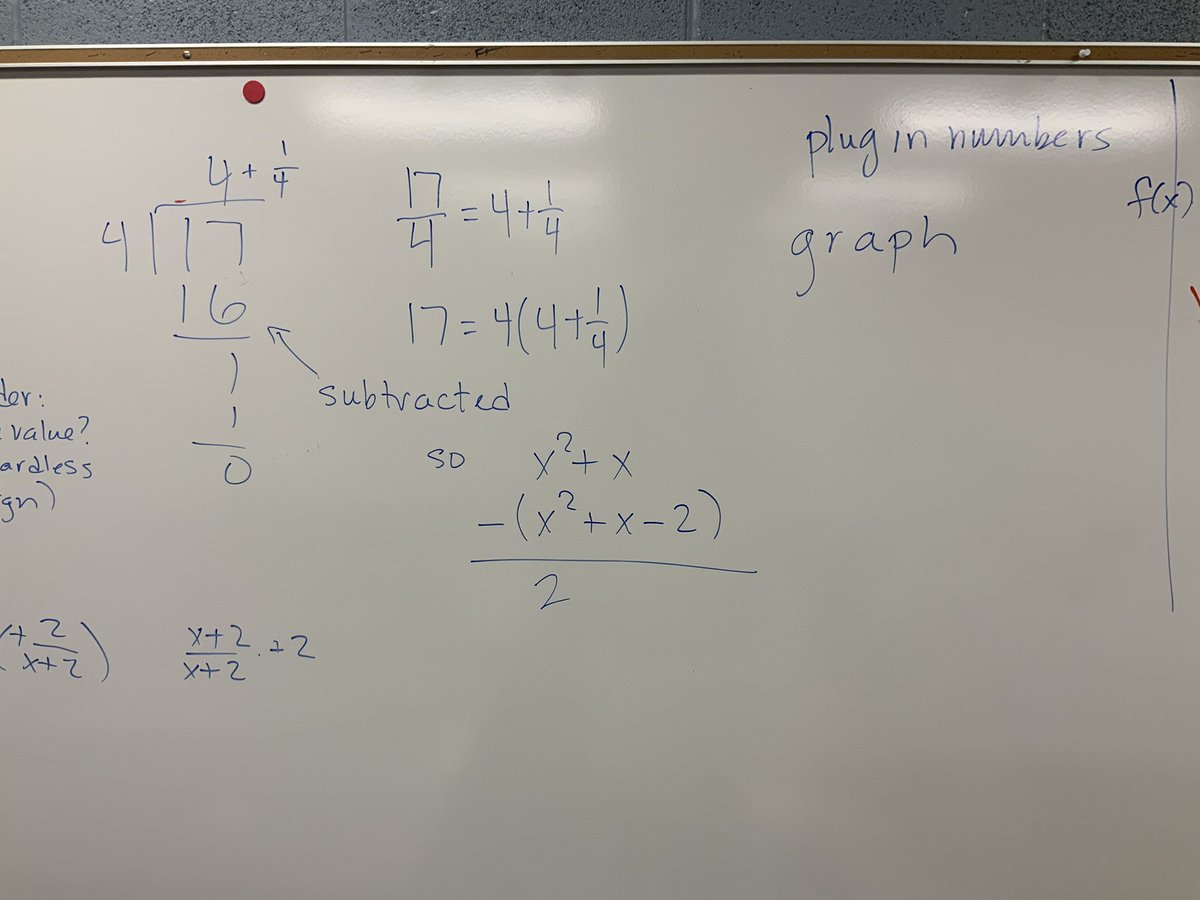 4 + 1/4
4 17
16
1
1
0
17/4 = 4 + 1/4
17 = 4(4 + 1/4)
subtracted
so x² + x
-(x² + x - 2)
2
plug in numbers
graph
f(x)
der:
value?
ardless
gn)
+ 2/x+2)
x+2/x+2 · +2